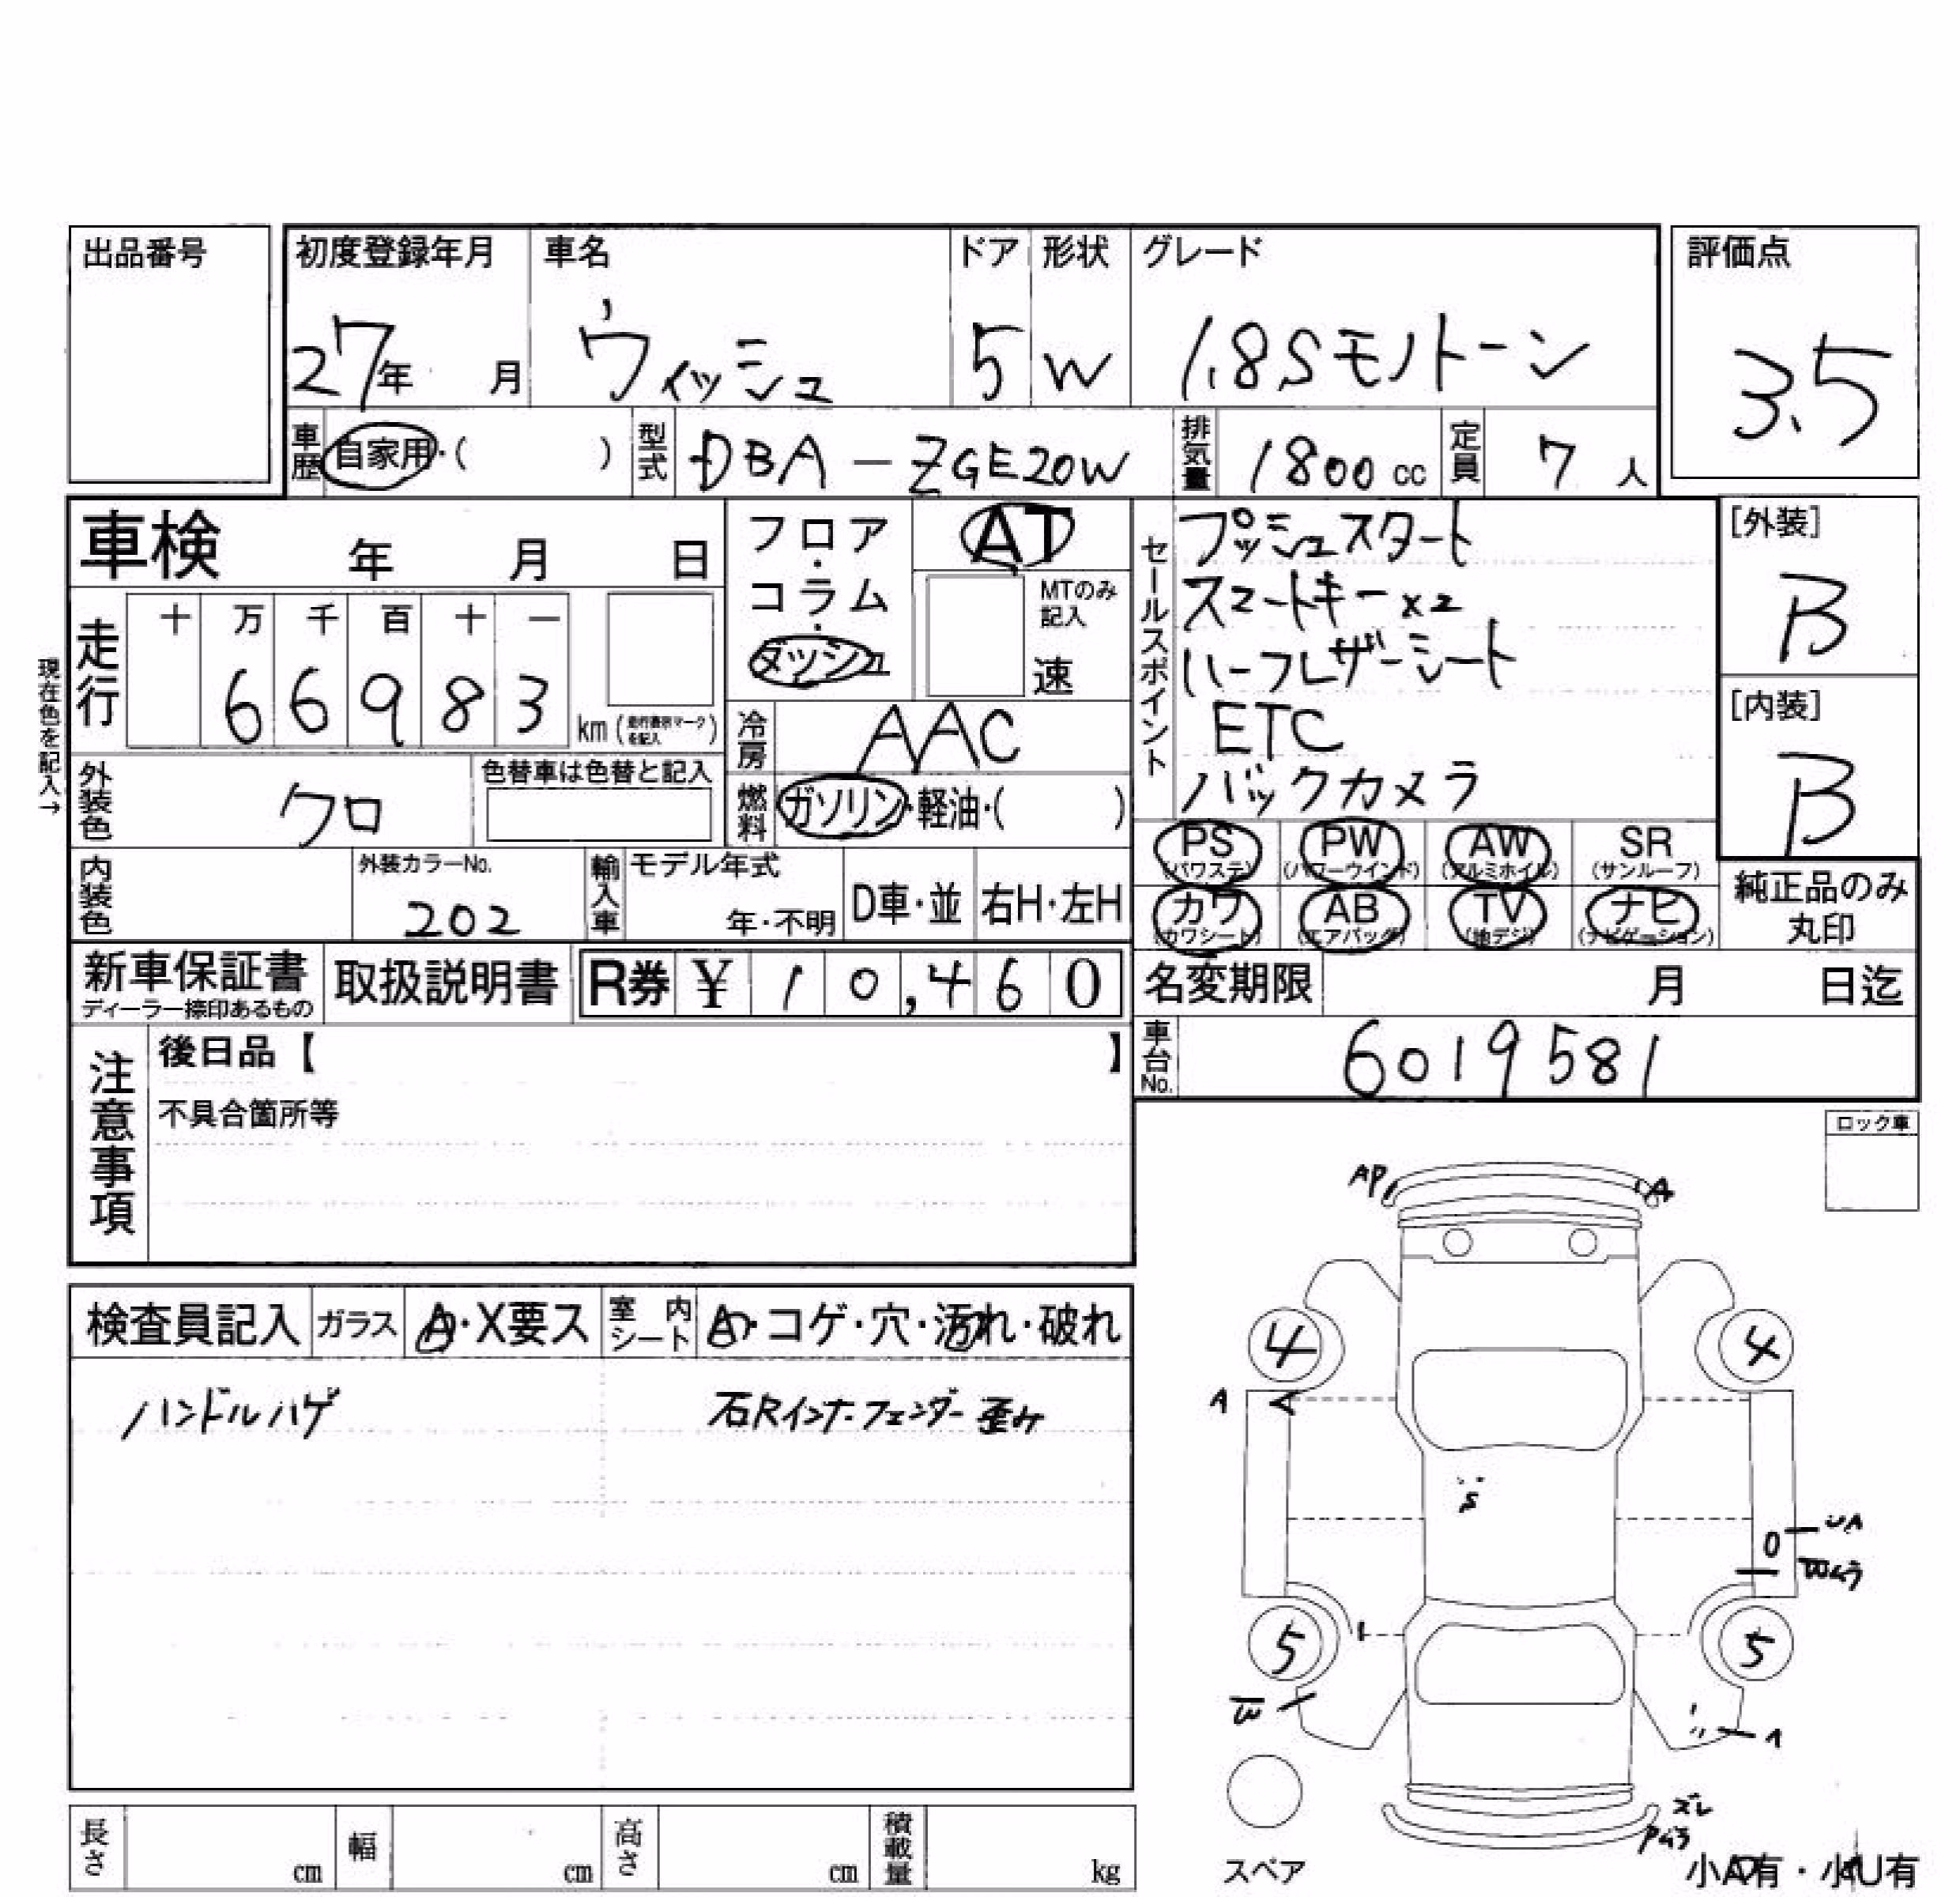 出品番号
初度登録年月 車名 ドア 形状 グレード 評価点
27年 月 ウィッシュ 5 W 1.8Sモノトーン 3.5
車歴 自家用・( ) 型式 DBA-ZGE20W 排気量 1800cc 定員 7人
車検 年 月 日
フロア・コラム・ダッシュ AT
MTのみ記入 速
現在色を記入→
走行 十 万 千 百 十 一
66983 km(走行表示マークを記入)
冷房 AAC
外装色 クロ 色替車は色替と記入
燃料 ガソリン・軽油・( )
内装色 外装カラーNo. 202
輸入車 モデル年式 年・不明 D車・並 右H・左H
セールスポイント
プッシュスタート
スマートキー×2
ハーフレザーシート
ETC
バックカメラ
[外装]
B
[内装]
B
PS(パワステ) PW(パワーウインド) AW(アルミホイル) SR(サンルーフ)
カワ(カワシート) AB(エアバッグ) TV(地デジ) ナビ(ナビゲーション)
純正品のみ丸印
新車保証書 ディーラー捺印あるもの 取扱説明書 R券 ¥10,460
名変期限 月 日迄
車台No. 6019581
注意事項
後日品【 】
不具合箇所等
ロック車
検査員記入 ガラス A・X要ス 室内シート A・コゲ・穴・汚れ・破れ
ハンドルハゲ 右Rインナーフェンダー歪み
AP A
4 4
A
S
UA
Wムラ
5 5
W
A
ズレ
Pムラ
スペア
小A有・小U有
長さ cm 幅 cm 高さ cm 積載量 kg